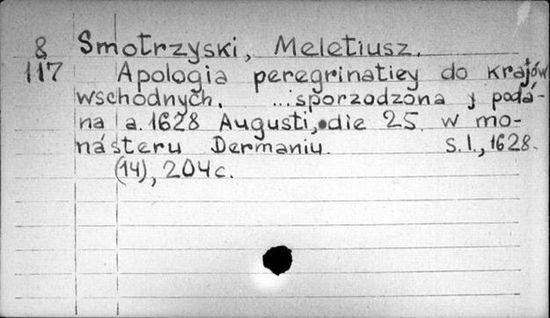 8 Smotrzyski, Meletiusz.
117 Apologia peregrinatiey do krajów
wschodnych. ...sporzodzona y podá-
na a. 1628 Augusti, die 25. w mo-
násteru Dermaniu. s.l., 1628.
(14), 204 c.